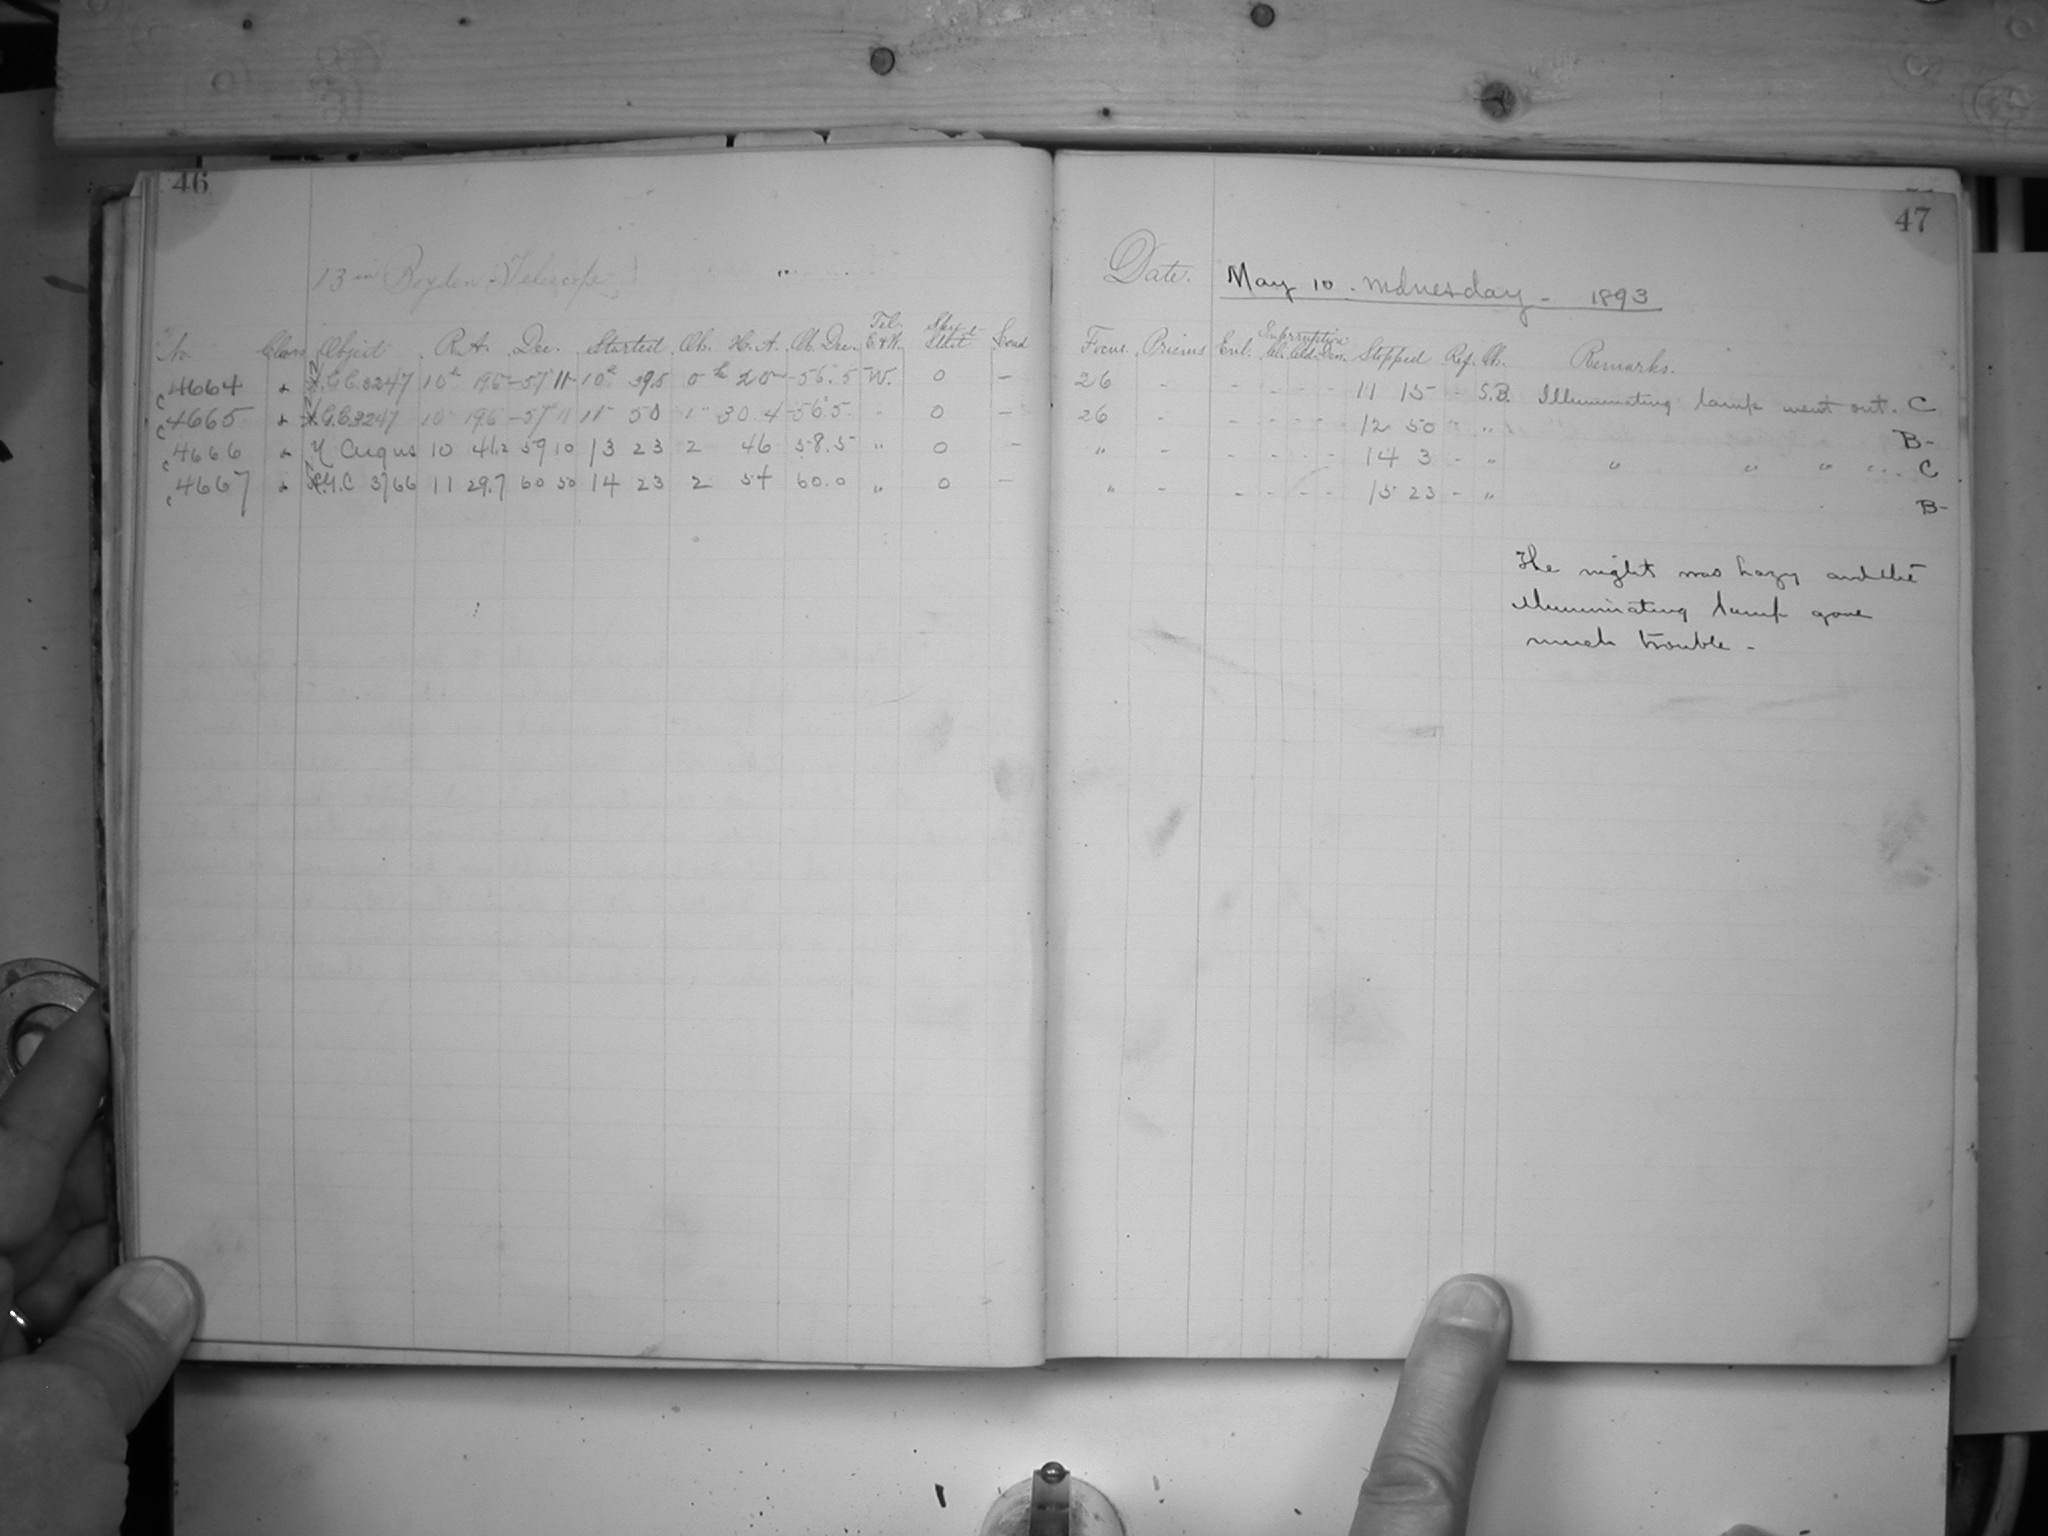 46
13 in Boyden Telescope
No. Class Object R.A. Dec. Started Ob. H.A. Ob. Dec. Tel. E.&W. Sky Slit Cond
c 4664 α N.G.C. 3247 10h 19.5 -57 11 10h 39.5 0h 20m -56.5 W. 0 -
c 4665 α N.G.C. 3247 10 19.6 -57 11 11 50 1 30.4 -56.5 - 0
c 4666 α η Argus 10 41.2 59 10 13 23 2 46 58.5 " 0 -
c 4667 α N.G.C 3766 11 29.7 60 50 14 23 2 54 60.0 " 0 -
47
Date. May 10. Wednesday - 1893
Focus. Prisms Enl. Interruption Cl. Cld. Dew. Stopped Ref. Ob. Remarks.
26 - - - - - 11 15 - S.B. Illuminating lamp went out. C
26 - - - - - 12 50 " B-
" - - - - - 14 3 - " " " " " C
" - - - - - 15 23 - " B-
The night was hazy and the
illuminating lamp gave
much trouble -